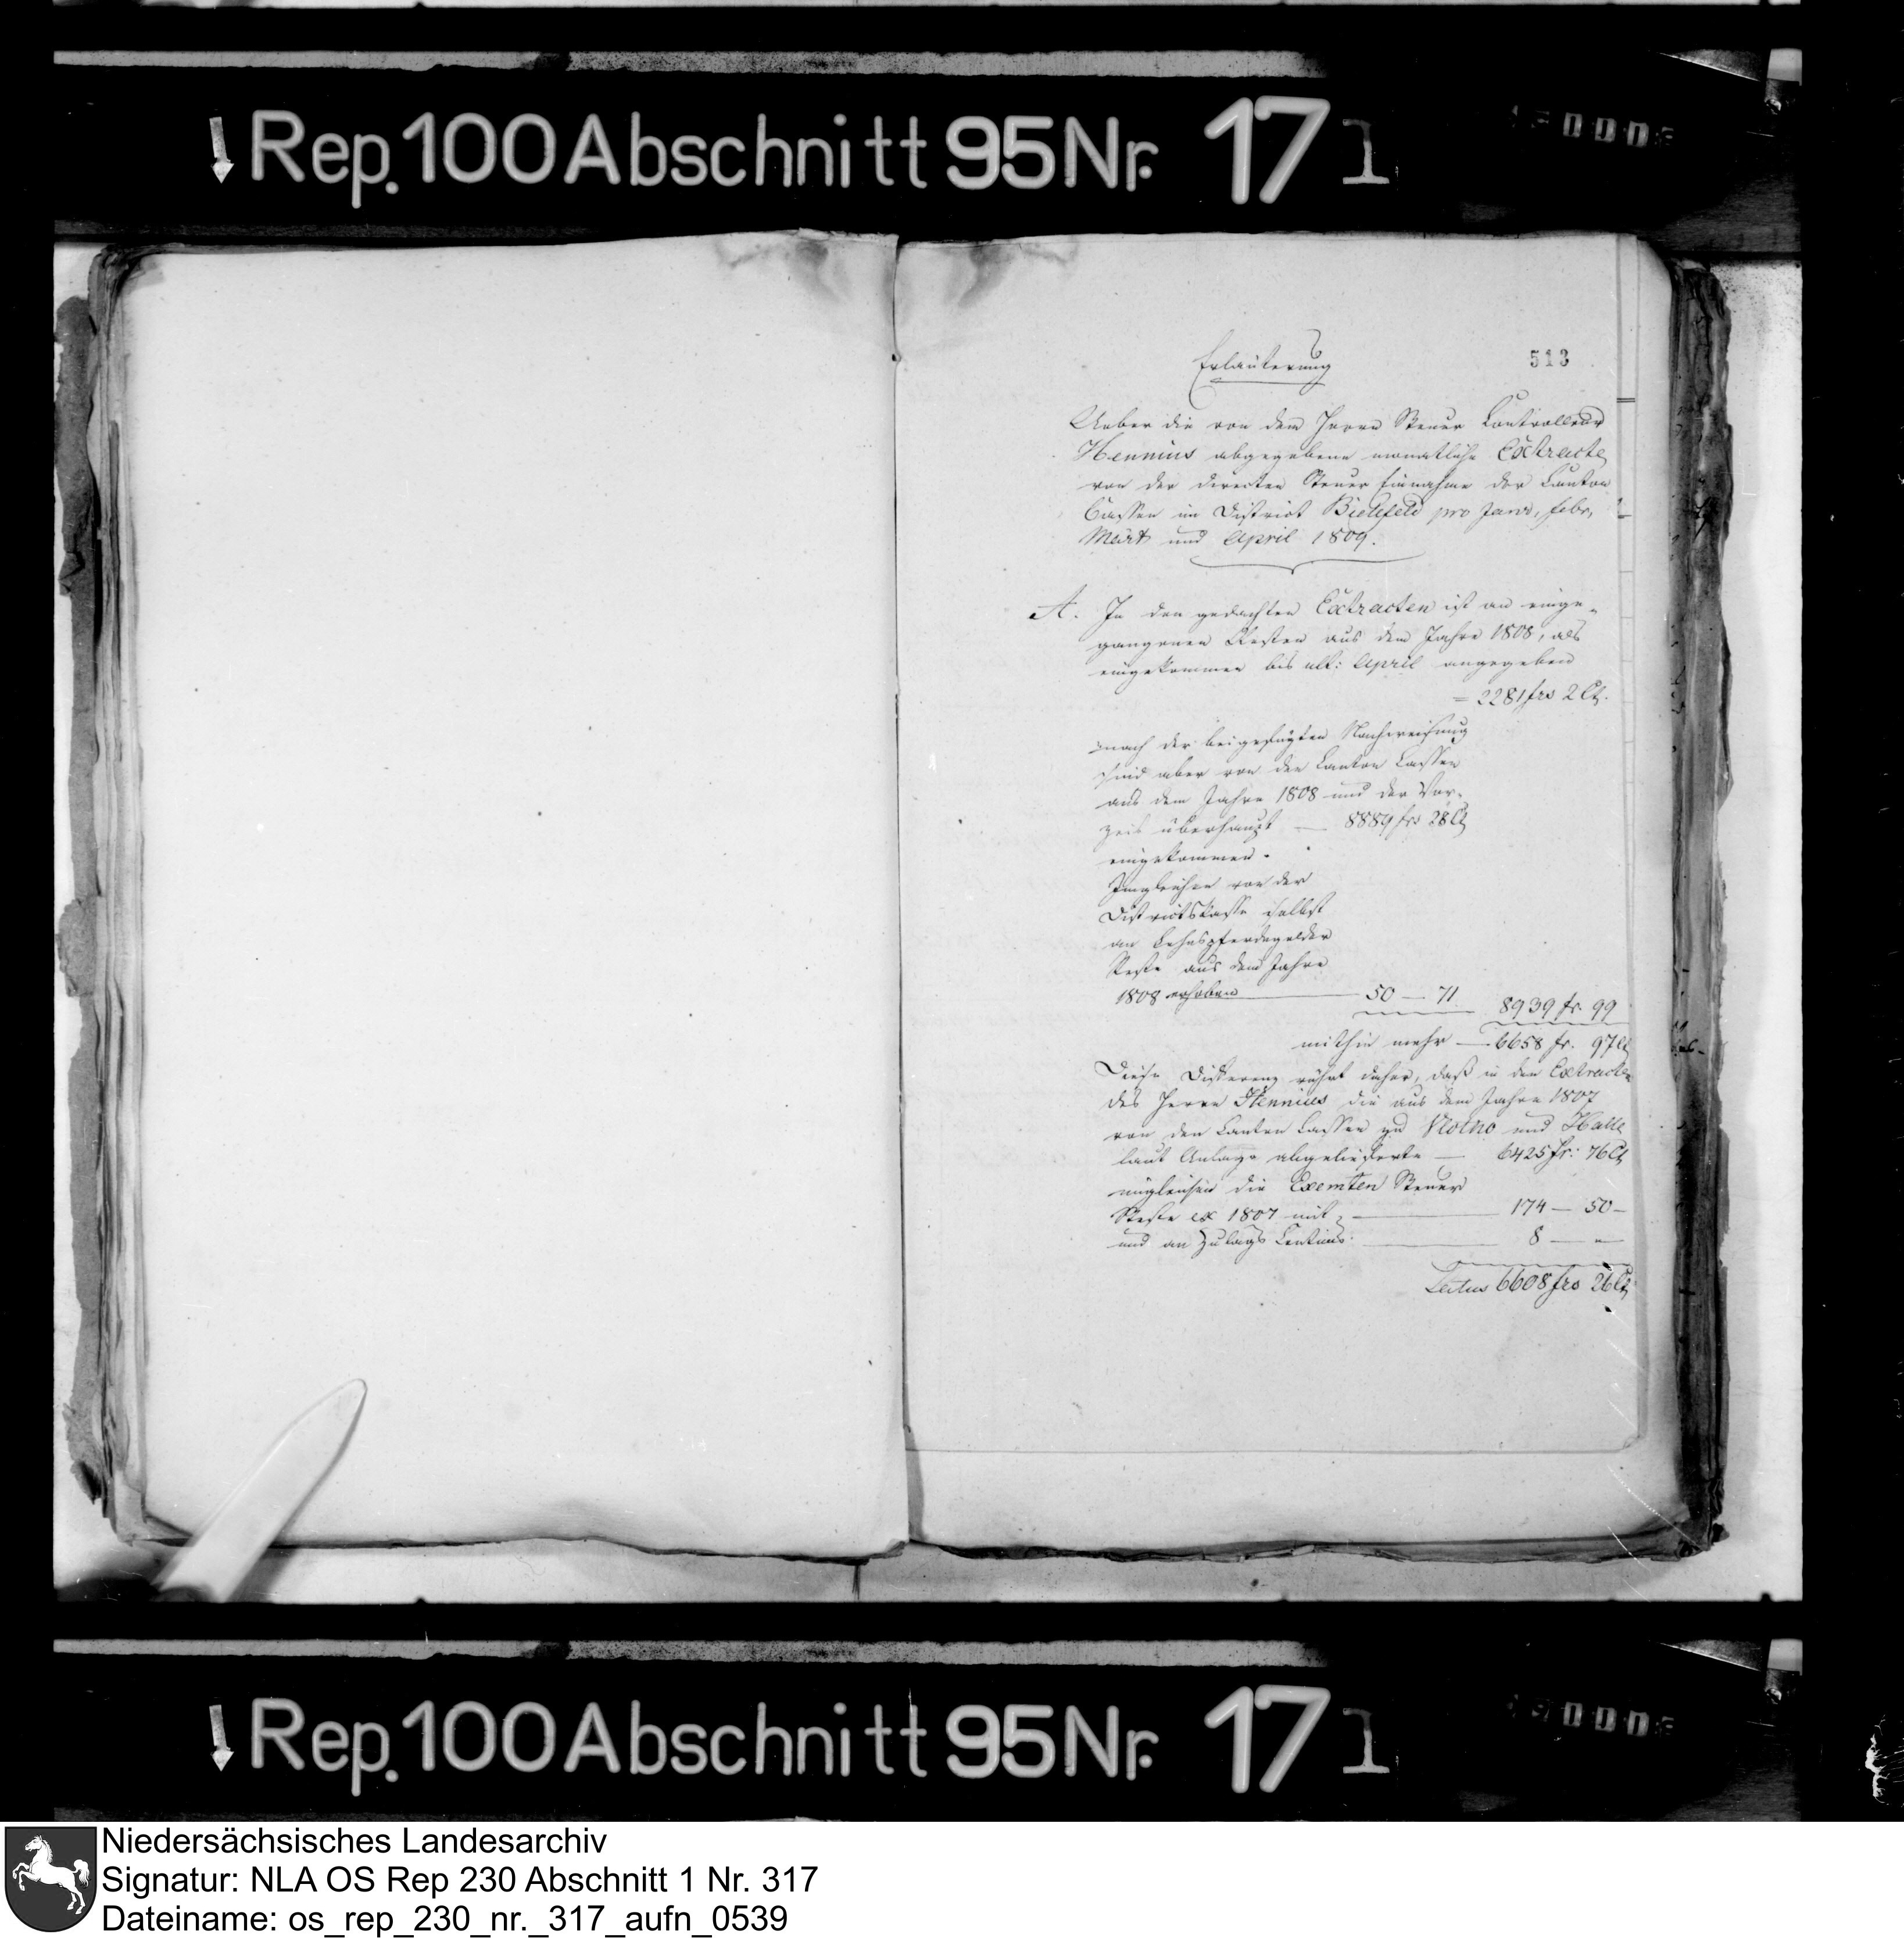 Rep. 100 Abschnitt 95 Nr. 171
513
Erläuterung
Ueber die von dem Herrn Steuer Controlleur
Hennius abgegebene monatliche Extracte
von der directen Steuer Einnahme der Canton
Cassen im District Bielefeld pro Janr, febr,
Märtz und April 1809.
A. In den gedachten Extracten ist an einge-
gangenen Resten aus dem Jahre 1808, als
eingekommen bis ult: April angegeben
= 2281 frs 2 Ct.
nach der beigefügten Nachweisung
sind aber von den Canton Cassen
aus dem Jahre 1808 und der Vor-
zeit überhaupt — 8889 frs 28 Ct
eingekommen.
Imgleichen von der
Districts Casse selbst
an Lehnspferdegelder
Reste aus dem Jahre
1808 erhoben — 50 — 71
8939 fr. 99
mithin mehr — 6658 fr. 97 Ct
Diese Differenz rührt daher, daß in den Extracten
des Herrn Hennius die aus dem Jahre 1807
von den Canton Cassen zu Vlotho und Halle
laut Anlage abgelieferte — 6425 fr: 76 Ct
imgleichen die Exemten Steuer
Reste ex 1807 mit — 174 — 50 —
und an Zulags Centimes — 8 — "
Latus 6608 frs 26 Ct
Rep. 100 Abschnitt 95 Nr. 171
Niedersächsisches Landesarchiv
Signatur: NLA OS Rep 230 Abschnitt 1 Nr. 317
Dateiname: os_rep_230_nr._317_aufn_0539